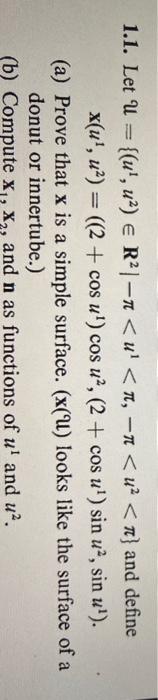 1.1. Let 𝒰 = {(u¹, u²) ∈ R² | −π < u¹ < π, −π < u² < π} and define
x(u¹, u²) = ((2 + cos u¹) cos u², (2 + cos u¹) sin u², sin u¹).
(a) Prove that x is a simple surface. (x(𝒰) looks like the surface of a
donut or innertube.)
(b) Compute x₁, x₂, and n as functions of u¹ and u².